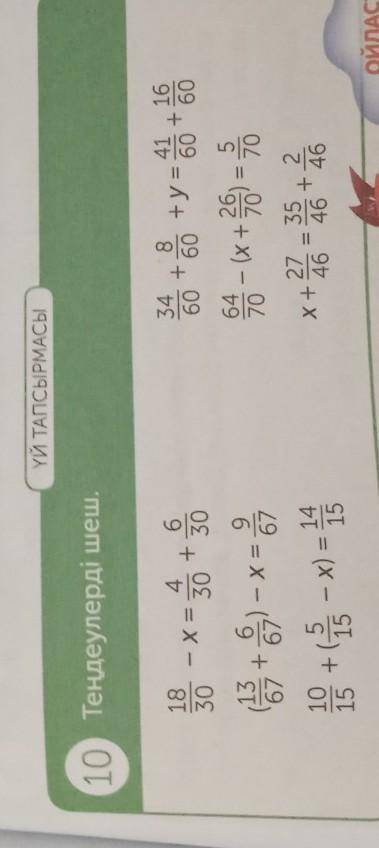 ҮЙ ТАПСЫРМАСЫ
10 Теңдеулерді шеш.
18/30 − x = 4/30 + 6/30
(13/67 + 6/67) − x = 9/67
10/15 + (5/15 − x) = 14/15
34/60 + 8/60 + y = 41/60 + 16/60
64/70 − (x + 26/70) = 5/70
x + 27/46 = 35/46 + 2/46
ОЙЛАС